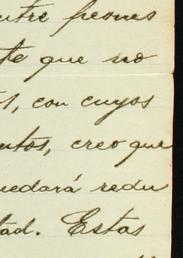 ntre peones
te que no
s, con cuyos
ntos, creo que
uedará redu
tad. Estas